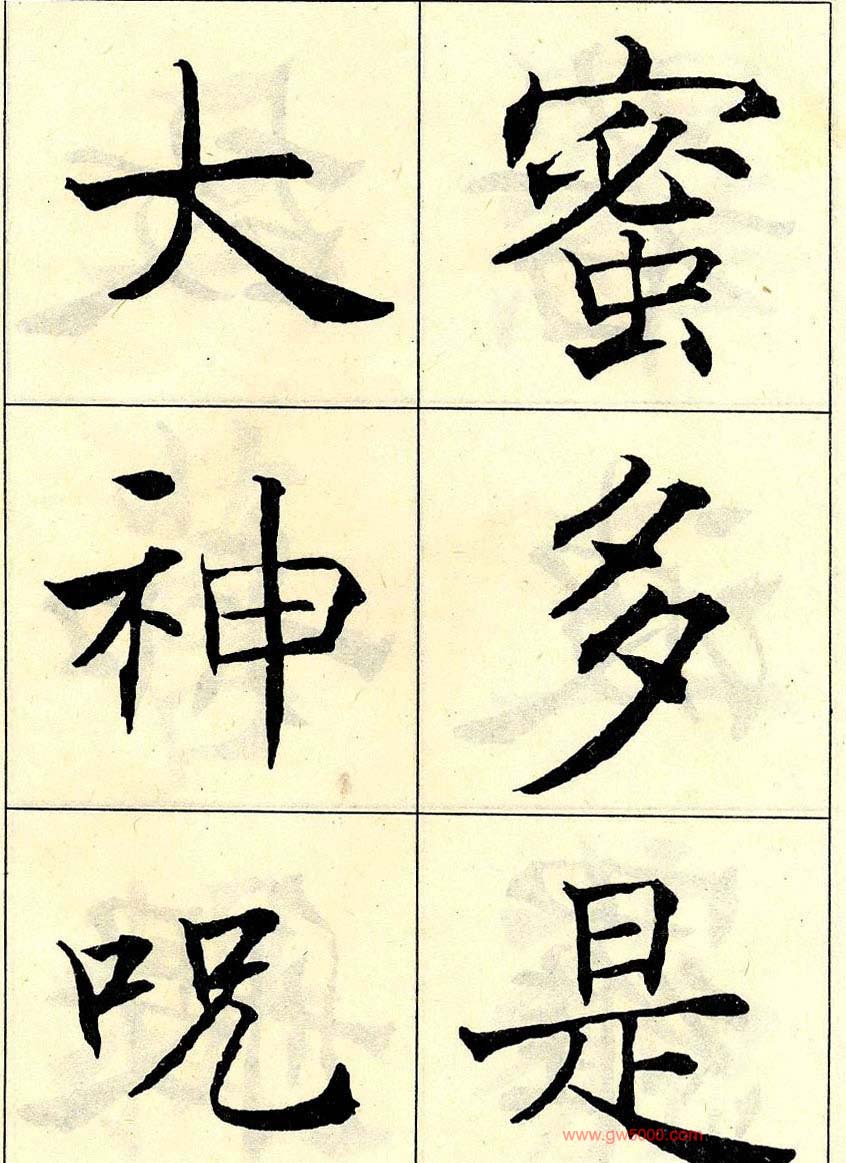 蜜多是
大神咒
www.gw5000.com